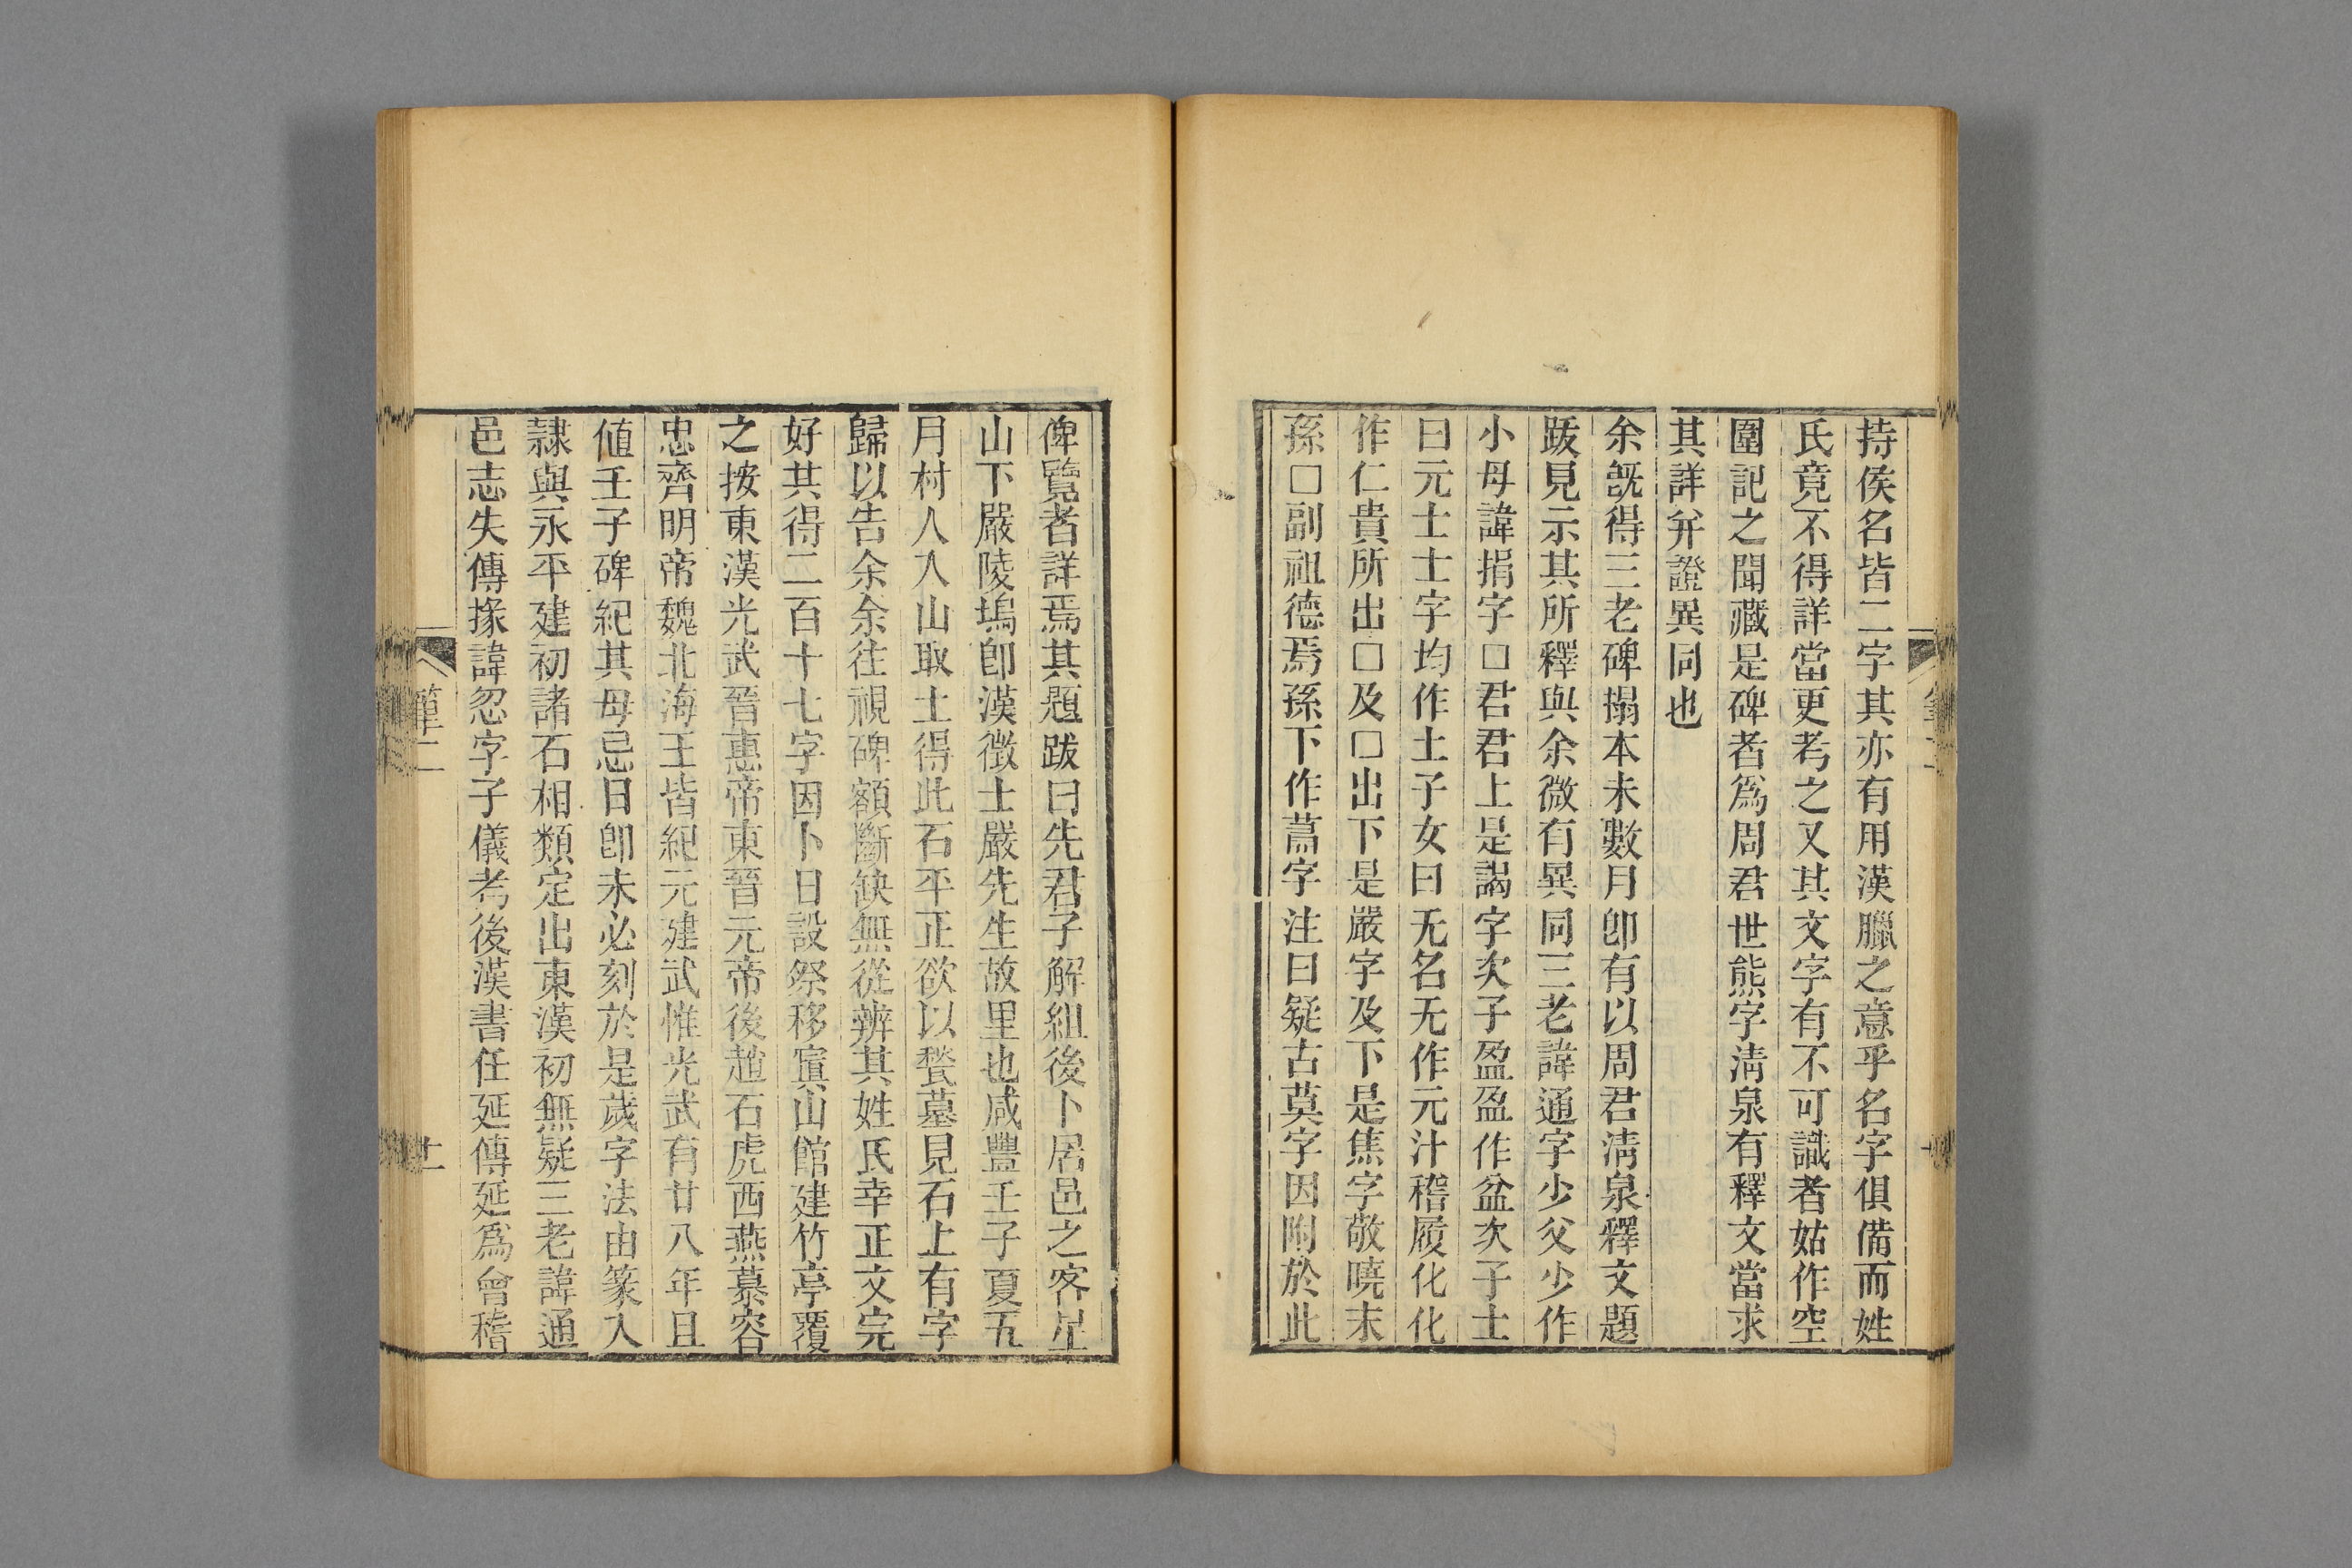 持侯名皆二字其亦有用漢臘之意乎名字俱備而姓
氏竟不得詳當更考之又其文字有不可識者姑作空
圍記之聞藏是碑者爲周君世熊字淸泉有釋文當求
其詳弁證異同也
余旣得三老碑搨本未數月卽有以周君淸泉釋文題
跋見示其所釋與余微有異同三老諱通字少父少作
小母諱捐字□君君上是謁字次子盈盈作盆次子士
曰元士士字均作土子女曰无名无作元汁稽履化化
作仁貴所出□及□出下是嚴字及下是焦字敬曉末
孫□副祖德焉孫下作蒿字注曰疑古莫字因附於此
俾覽者詳焉其題跋曰先君子解組後卜居邑之客星
山下嚴陵塢卽漢徴士嚴先生故里也咸豐壬子夏五
月村人入山取土得此石平正欲以甃墓見石上有字
歸以告余余往視碑額斷缺無從辨其姓氏幸正文完
好其得二百十七字因卜日設祭移窴山館建竹亭覆
之按東漢光武晉惠帝東晉元帝後趙石虎西燕慕容
忠齊明帝魏北海王皆紀元建武惟光武有廿八年且
値壬子碑紀其母忌日卽未必刻於是歲字法由篆入
隷與永平建初諸石相類定出東漢初無疑三老諱通
邑志失傳掾諱忽字子儀考後漢書任延傳延爲會稽
筆二
十一